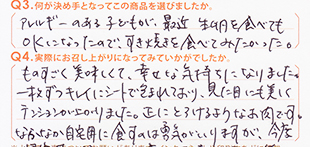 Q3.何が決め手となってこの商品を選びましたか。
アレルギーのある子どもが、最近 生卵を食べても
OKになったので、すき焼きを食べてみたかった。
Q4.実際にお召し上がりになってみていかがでしたか。
ものすごく美味しくて、幸せな気持ちになりました。
一枚ずつキレイにシートで包まれており、見た目にも美しく
テンションが上がりました。正にとろけるようなお肉です。
なかなか自宅用に食すのは勇気がいりますが、今度